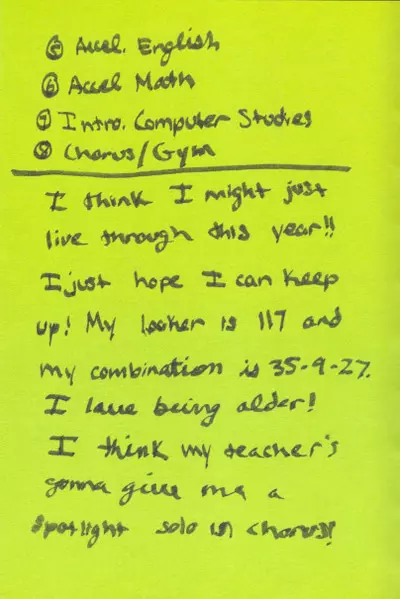 ⑤ Accel. English
⑥ Accel Math
⑦ Intro. Computer Studies
⑧ Chorus/Gym
I think I might just
live through this year!!
I just hope I can keep
up! My locker is 117 and
my combination is 35-9-27.
I love being older!
I think my teacher's
gonna give me a
spotlight solo in chorus!